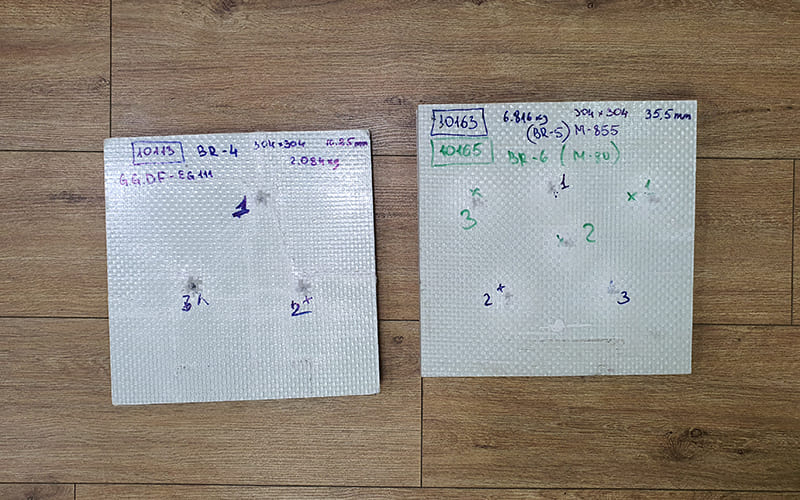 10113 BR-4 304×304 10.25mm
2.084kg
G.G.DF-EG111
1
3
2
10163 6.816kg 304×304 35,5mm
(BR-5) M-855
10165 BR-6 (M-80)
1
1
3
2
2
3